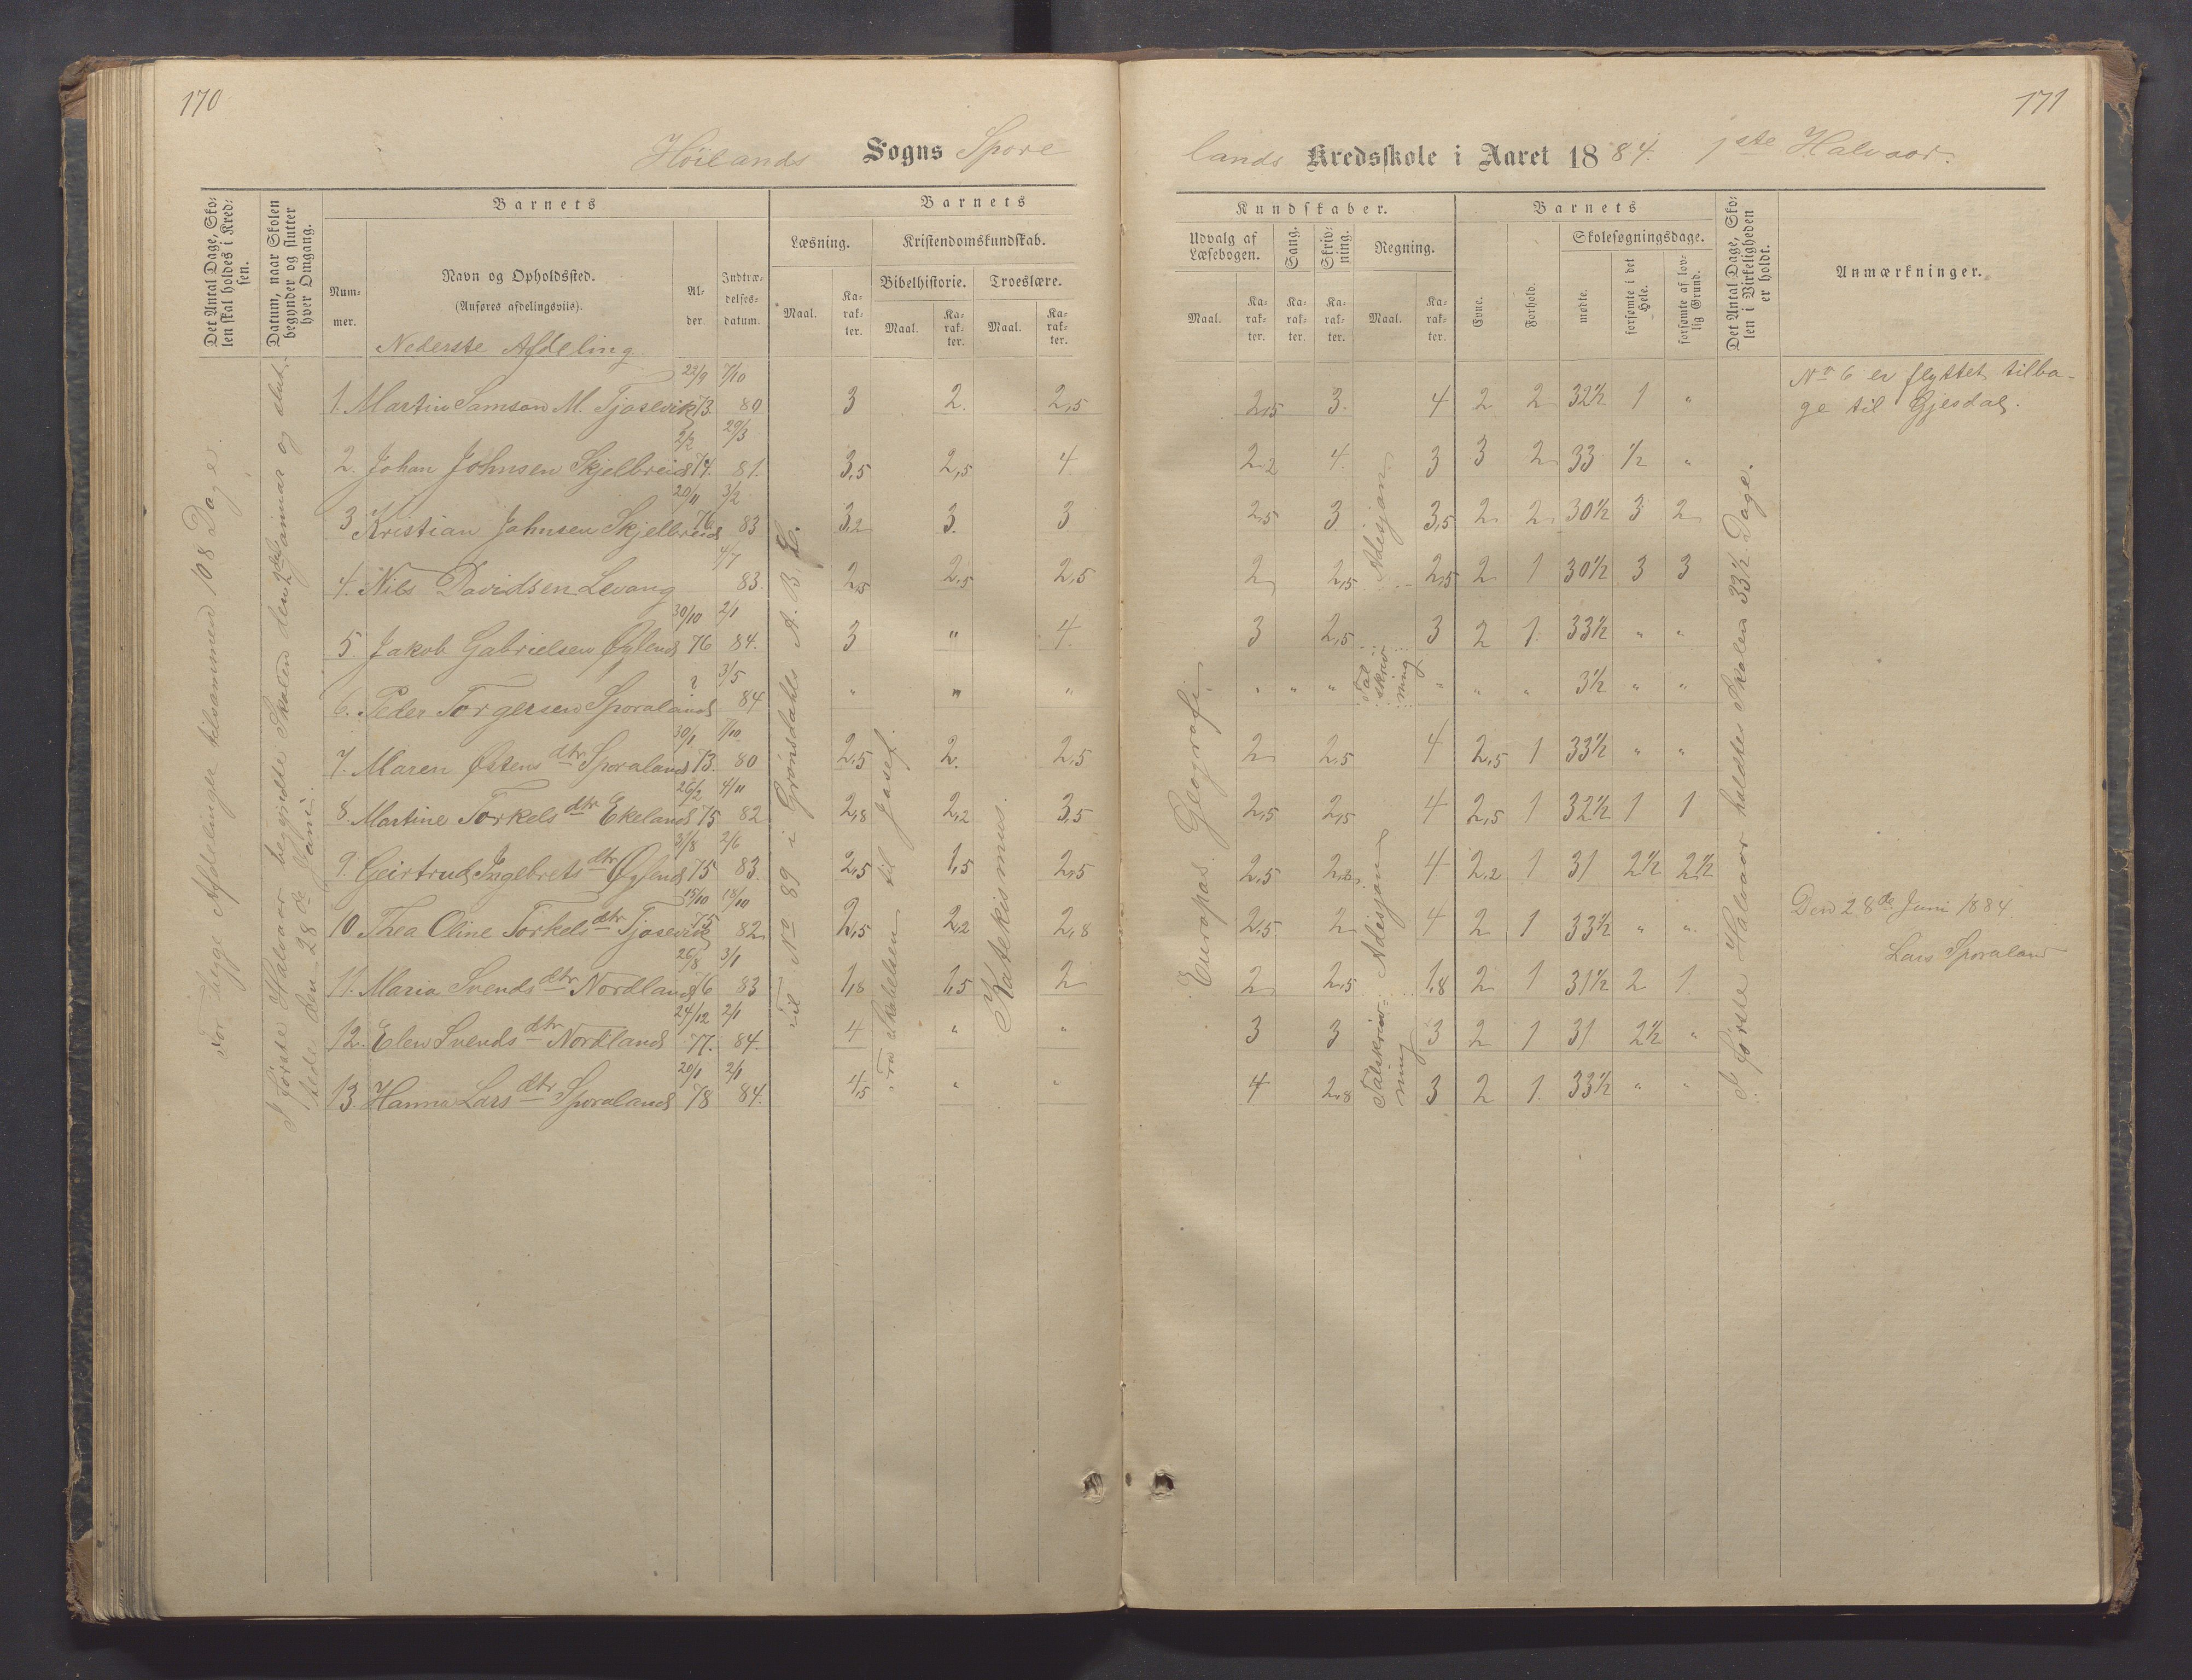 170
Höilands Sogns Spore
Det Antal Dage, Sko-
len skal holdes i Kred-
sen.
Datum, naar Skolen
begynder og slutter
hver Omgang.
Barnets
Num-
mer.
Navn og Opholdssted.
(Anføres afdelingsviis).
Al-
der.
Indtræ-
delses-
datum.
Barnets
Læsning.
Maal.
Ka-
rak-
ter.
Kristendomskundskab.
Bibelhistorie.
Maal.
Ka-
rak-
ter.
Troeslære.
Maal.
Ka-
rak-
ter.
Nederste Afdeling.
For begge Afdelinger tilsammen 108 Dage.
I første Halvaar begyndte Skolen den 2den Januar og slut-
tede den 28de Juni.
1. Martin Samson M. Tjosevik 22/9 73. 7/10 80 3 2. 2,5
2. Johan Johnsen Skjelbreid 2/2 74. 29/3 81. 3,5 2,5 4
3 Kristian Johnsen Skjelbreid 20/11 76 3/2 83 3,2 3. 3
4. Nils Davidsen Levang 4/7 83. 2,5 2,5 2,5
5. Jakob Gabrielsen Øglend 30/10 76 2/1 84. 3 " 4.
6. Peder Torgersen Sporaland ? 3/5 84 " " "
7. Maren Østens dtr Sporaland 30/1 73. 7/10 80 2,5 2. 2,5
8. Martine Torkels dtr Ekeland 26/2 75 4/11 82 2,8 2,2 3,5
9. Geirtrud Ingebrets dtr Øglend 31/8 75 2/6 83. 2,5 1,5 2,5
10 Thea Oline Torkels dtr Tjosevik 15/10 75 18/10 82 2,5 2,2 2,8
11. Maria Svends dtr Nordland 26/8 76 3/1 83 1,8 1,5 2
12. Elen Svends dtr Nordland 24/12 77. 2/1 84. 4 " "
13. Hanna Lars dtr Sporaland 20/1 78 2/1 84. 4,5 " "
Til No 89 i Grønsdahls A. B. C.
Fra Skabelsen til Josef.
Katekismus.
171
lands Kredsskole i Aaret 1884. 1ste Halvaar.
Kundskaber.
Udvalg af
Læsebogen.
Maal.
Ka-
rak-
ter.
Sang.
Ka-
rak-
ter.
Skriv-
ning.
Ka-
rak-
ter.
Regning.
Maal.
Ka-
rak-
ter.
Barnets
Evne.
Forhold.
Skolesøgningsdage.
mødte.
forsømte i det
Hele.
forsømte af lov-
lig Grund.
Det Antal Dage, Sko-
len i Virkeligheden
er holdt.
Anmærkninger.
Europas Geografi.
2,5 3. 4 2 2 32½ 1 "
2,2 4. 3 3 2 33 ½ "
2,5 3 3,5 2 2 30½ 3 2
2 2,5 2,5 2 1 30½ 3 3
3 2,5 3 2 1 33½ " "
" " " " " " 3½ " "
2 2,5 4 2,5 1 33½ " "
2,5 2,5 4 2,5 1 32½ 1 1
2,5 2,2 4 2,2 1 31 2½ 2½
2,5 2 4 2 1 33½ " "
2 2,5 1,8 2 1 31½ 2 1
3 3 3 2 1 31 2½ "
4 2,8 3 2 1. 33½ " "
Adisjon
Tal
skriv
ning
Adisjon
Talskriv-
ning
I første Halvaar holdtes Skolen 33½ Dage.
No 6 er flyttet tilba-
ge til Gjesdal.
Den 28de Juni 1884
Lars Sporaland